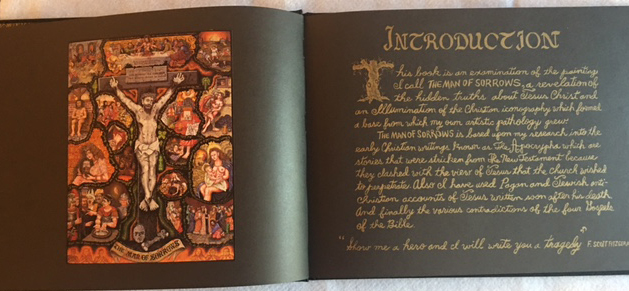 THE MAN OF SORROWS
INTRODUCTION
This book is an examination of the painting
I call THE MAN OF SORROWS, a revelation of
the hidden truths about Jesus Christ and
an illumination of the Christian iconography which formed
a base from which my own artistic pathology grew.
THE MAN OF SORROWS is based upon my research into the
early Christian writings known as The Apocrypha which are
stories that were stricken from the New Testament because
they clashed with the view of Jesus that the church wished
to perpetuate. Also I have used Pagan and Jewish anti-
Christian accounts of Jesus written soon after his death.
And finally the various contradictions of the four Gospels
of the Bible.
"Show me a hero and I will write you a tragedy"
F. SCOTT